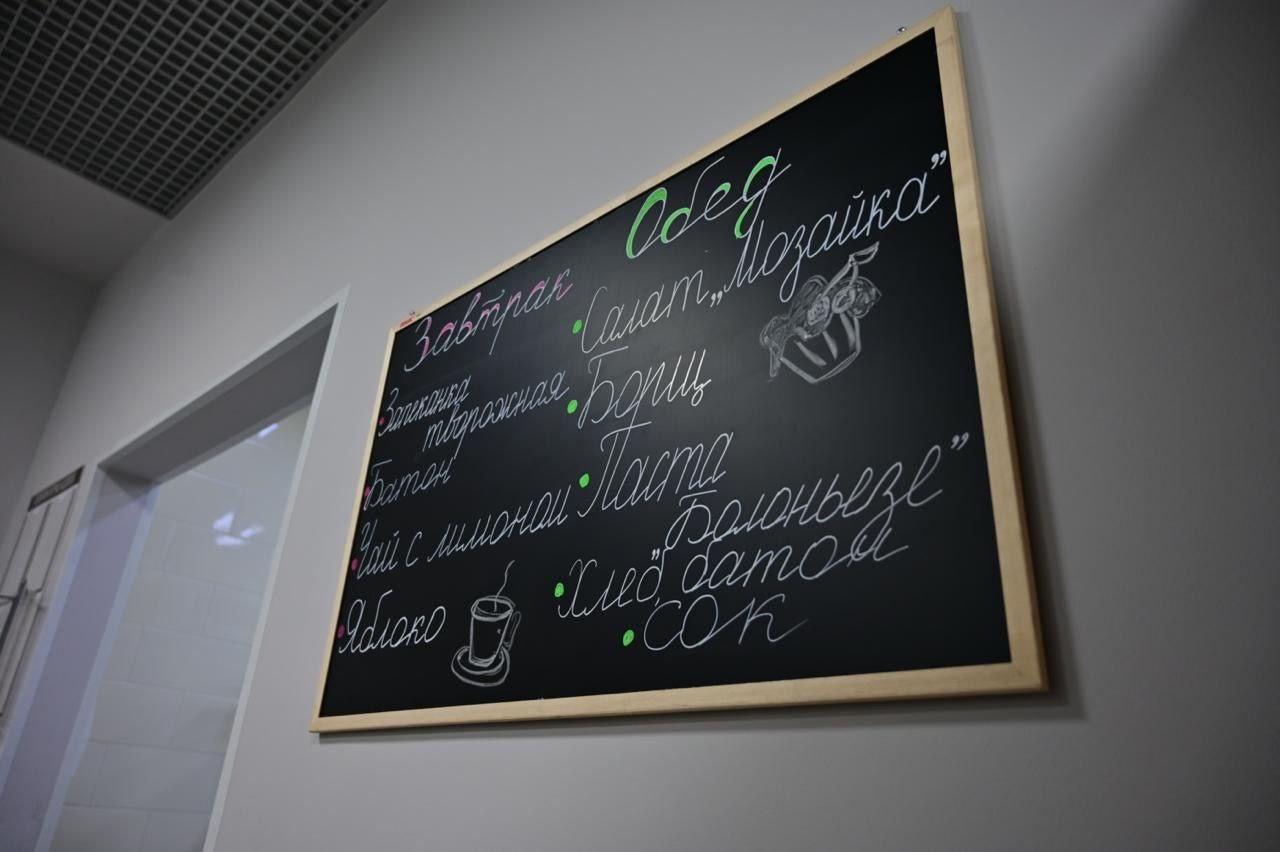 Завтрак
Запеканка
творожная
Батон
Чай с лимоном
Яблоко
Обед
Салат „Мозайка”
Борщ
Паста
„Болоньезе”
Хлеб, батон
Сок